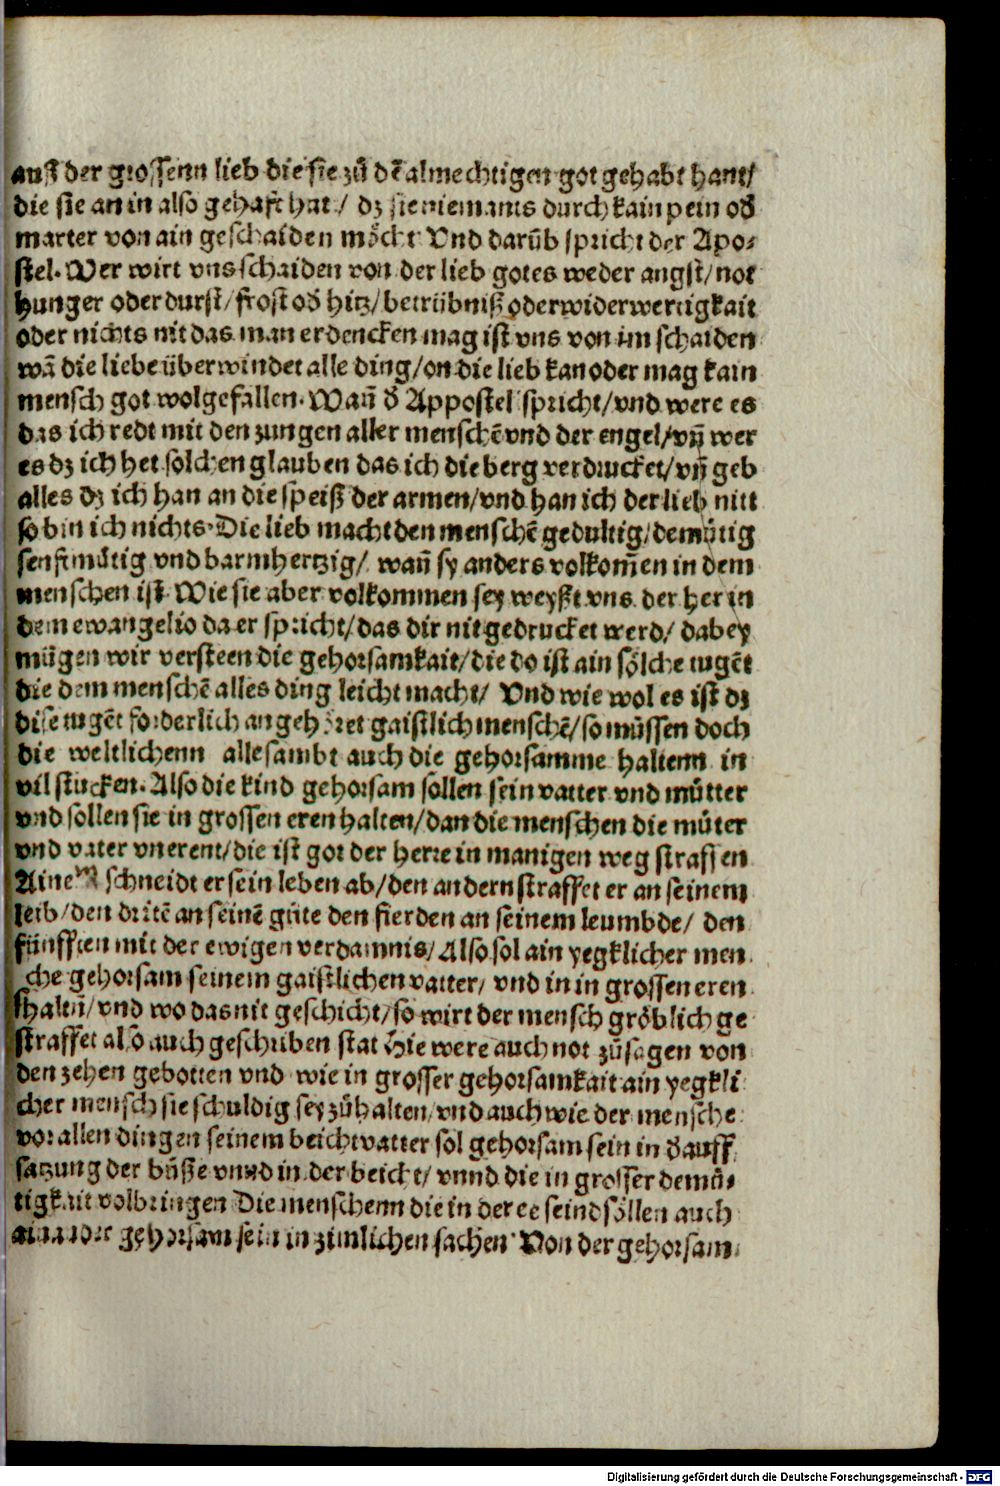 auß der grossenn lieb die sie zů dẽ almechtigen got gehabt hant/
die sie an in also gehaft hat/ dz sie niemants durch kain pein oď
marter von ain geschaiden möcht Vnd darůb spricht der Apo⸗
stel. Wer wirt vns schaiden von der lieb gotes weder angst/not
hunger oder durst/frost oď hitz/betrübniß oder widerwertigkait
oder nichts nit das man erdencken mag ist vns von im schaiden
wã die liebe überwindet alle ding/on die lieb kan oder mag kain
mensch got wolgefallen. Wañ ď Appostel spricht/vnd were es
das ich redt mit den zungen aller menschẽ vnd der engel/vñ wer
es dz ich het solchen glauben das ich die berg verdrucket/vñ geb
alles dz ich han an die speiß der armen/vnd han ich der lieb nitt
so bin ich nichts. Die lieb macht den menschẽ gedultig/demütig
senftmůtig vnd barmhertzig/ wañ sy anders volkom̃en in dem
menschen ist Wie sie aber volkommen sey weyßt vns der her in
dem ewangelio da er spricht/das dir nit gedrucket werd/ dabey
mügen wir versteen die gehorsamkait/die do ist ain sölche tugẽt
die dem menschẽ alles ding leicht macht/ Vnd wie wol es ist dz
dise tugẽt forderlich angehöret gaistlich menschẽ/so müssen doch
die weltlichenn allesambt auch die gehorsamme haltenn in
vil stucken. Also die kind gehorsam sollen sein vatter vnd můtter
vnd sollen sie in grossen eren halten/dan die menschen die můter
vnd vater vnerent/die ist got der herre in manigen weg straffen
Ainem schneidt er sein leben ab/den andern straffet er an seinem
leib/den dritẽ an seinẽ gůte den fierden an seinem leumbde/ den
fünfften mit der ewigen verdamnis/Also sol ain yegklicher men
sche gehorsam seinem gaistlichen vatter/ vnd in in grossen eren
halten/vnd wo das nit geschicht/so wirt der mensch gröblich ge
straffet also auch geschriben stat Hie were auch not zů sagen von
den zehen gebotten vnd wie in grosser gehorsamkait ain yegkli
cher mensch sie schuldig sey zů halten/vnd auch wie der mensche
vor allen dingen seinem beichtvatter sol gehorsam sein in ď auff
satzung der bůße vnnd in der beicht/ vnnd die in grosser demů⸗
tigkait volbringen Die menschenn die in der ee seind söllen auch
gehorsam sein in zimlichen sachen. Von der gehorsam⸗
Digitalisierung gefördert durch die Deutsche Forschungsgemeinschaft - DFG